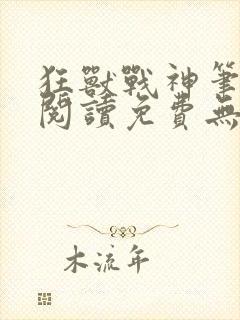 狂獸戰神筆
閱讀免費無
木流年